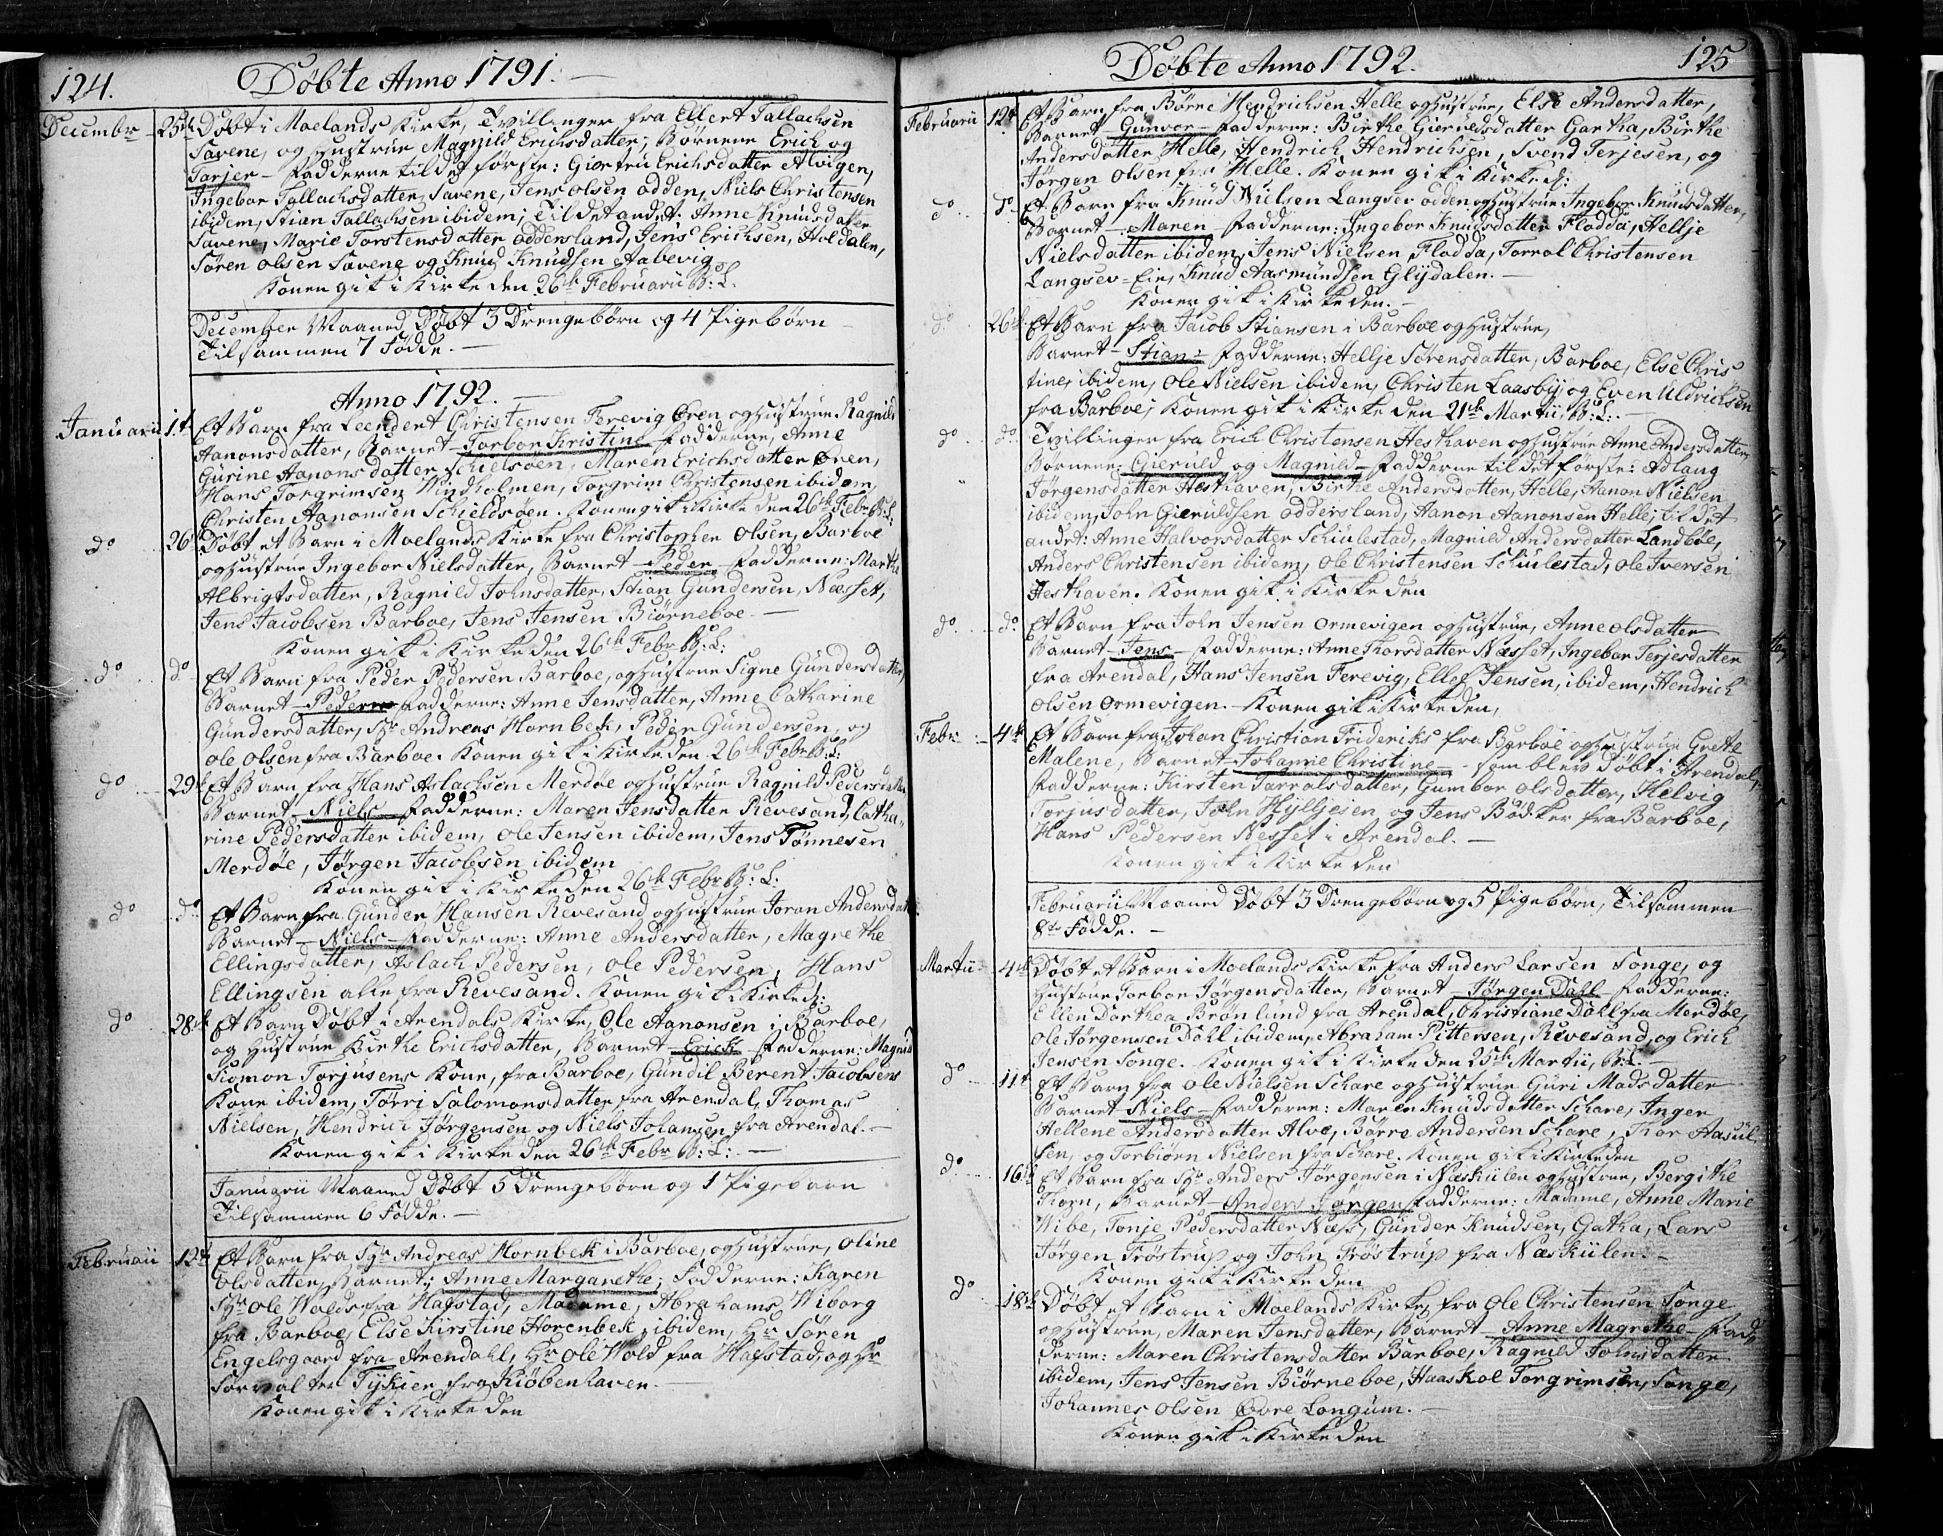 124. Døbte Anno 1791.
Decembr 25de Døbt i Moelands Kirke, Tvillinger fra Ellert Tallachsen
Savene, og Hustrue Magnild Erichsdatter; Børnene Erich og
Tarjer - Fadderne til det første: Giertru Erichsdatter Alvigen,
Ingebor Tallachsdatter Savene, Jens Olsen Odden, Niels Christensen
ibidem, Stian Tallachsen ibidem; Til det andet: Anne Knudsdatter
Savene, Marie Torstensdatter Oddersland, Jens Erichsen, Holdalen,
Søren Olsen Savene og Knud Knudsen Aabevig
Konen gik i Kirke den 26de Februarii B: L.
December Maaned Døbt 3 Drengebørn og 4 Pigebørn
Tilsammen 7 Fødde. -
Anno 1792.
Januarii 1t Et Barn fra Leendert Christensen Ferevig Øren og Hustrue Ragnild
Aanonsdatter, Barnet - Torbor Kristine Fadderne, Anne
Gurine Aanonsdatter Schielsøen, Maren Erichsdatter Øren,
Hans Torgrimsen Windholmen, Torgrim Christensen ibidem,
Christen Aanonsen Schieldsøen. Konen gik i Kirke den 26de Febr. B: L:
do 26de Døbt et Barn i Moelands Kirke fra Christopher Olsen, Barboe
og Hustrue Ingebor Nielsdatter, Barnet - Peder Fadderne: Marthe
Albrigtsdatter, Ragnild Johnsdatter, Stian Gundersen, Næsset,
Jens Jacobsen Barboe, Jens Jensen Biørneboe -
Konen gik i Kirke den 26de Febr. B: L:
do do Et Barn fra Peder Pedersen Barboe, og Hustrue Signe Gundersdatter,
Barnet - Peder Fadderne: Anne Jensdatter, Anne Catharine
Gundersdatter, Sr Andreas Hornbek, Peder Gundersen, og
Ole Olsen fra Barboe. Konen gik i Kirke den 26de Febr. B: L:
do 29de Et Barn fra Hans Aslachsen Merdøe og Hustrue Ragnild Pedersdatter
Barnet - Niels - Fadderne: Maren Jensdatter Revesand, Catha-
rine Pedersdatter ibidem, Ole Jensen ibidem, Jens Tønnesen
Merdøe, Jørgen Jacobsen ibidem
Konen gik i Kirke den 26de Febr. B: L.
do do Et Barn fra Gunder Hansen Revesand og Hustrue Joran Andersdatter
Barnet - Niels - Fadderne: Anne Andersdatter, Magrethe
Ellingsdatter, Aslach Pedersen, Ole Pedersen, Hans
Ellingsen alle fra Revesand. Konen gik i Kirke d:
do 28de Et Barn Døbt i Arendals Kirke, Ole Aanonsen i Barboe,
og Hustrue Birthe Erichsdatter, Barnet - Erich - Fadderne: Magnild
Sigmon Torjusens Kone, fra Barboe, Gundil Berent Jacobsens
Kone ibidem, Torri Salomonsdatter fra Arendal, Thomas
Nielsen, Hendrich Jørgensen og Niels Johansen fra Arendal. -
Konen gik i Kirke den 26de Febr. B: L: -
Januarii Maaned Døbt 5 Drengebørn og 1 Pigebarn
Tilsammen 6 Fødde. -
Februarii 12te Et Barn fra Sr Andreas Hornbek i Barboe, og Hustrue, Oline
Olsdatter, Barnet; Anne Margarethe; Fadderne: Karen
Sr Ole Wolds fra Hafstad, Madame, Abrahams Wiborg
fra Barboe, Else Kirstine Horenbek, ibidem, Hr Søren
Engelsgaard fra Arendahl, Hr Ole Wold fra Hafstad, og Hr
Forvalter Tykier fra Kiøbenhaven. -
Konen gik i Kirke den
Døbte Anno 1792. 125
Februarii 12te Et Barn fra Børre Hendrichsen Helle og Hustrue, Else Andersdatter,
Barnet - Gunvor - Fadderne: Birthe Gieruldsdatter Gartha, Birthe
Andersdatter Helle, Hendrich Hendrichsen, Svend Terjesen, og
Jørgen Olsen fra Helle. Konen gik i Kirke d:
do do Et Barn fra Knud Nielsen Langsev Odden og Hustrue Ingebor Knudsdatter,
Barnet - Maren - Fadderne: Ingebor Knudsdatter Flodda, Hellje
Nielsdatter ibidem, Jens Nielsen Flodda, Torrol Christensen
Langsev-Eie, Knud Aasmundsen Gljdalen. -
Konen gik i Kirke den. -
do 26de Et Barn fra Jacob Stiansen i Barboe og Hustrue,
Barnet - Stian - Fadderne: Hellje Sørensdatter, Barboe, Else Chris
tine, ibidem, Ole Nielsen ibidem, Christen Laasby, og Even Uldrichsen
fra Barboe; Konen gik i Kirke den 21de Martii B: L: -
do do Tvillinger fra Erich Christensen Hesthaven og Hustrue Anne Andersdatter,
Børnene: Gieruld og Magnild - Fadderne til det første: Adlaug
Jørgensdatter Hesthaven, Birthe Andersdatter, Helle, Aanon Nielsen
ibidem, John Gieruldsen Oddersland, Aanon Aanonsen Helle; til det
andet: Anne Halvorsdatter Schiulestad, Magnild Andersdatter Landbøe,
Anders Christensen ibidem, Ole Christensen Schiulestad, Ole Iversen
Hesthaven. Konen gik i Kirke den
do do Et Barn fra John Jensen Ormevigen og Hustrue, Anne Olsdatter
Barnet - Jens - Fadderne: Anne Thorsdatter Næsset, Ingebor Terjesdatter
fra Arendal, Hans Jensen Ferevig, Ellef Jensen, ibidem, Hendrich
Olsen Ormevigen. - Konen gik i Kirke den,
Febr: 4de Et Barn fra Johan Christian Frideriks fra Barboe og Hustrue Grete
Malene, Barnet - Johanne Christine - som blev Døbt i Arendal,
Fadderne: Kirsten Tarralsdatter, Gumbor Olsdatter, Helvig
Torjusdatter, John Hylljeien og Jens Bødker fra Barboe,
Hans Pedersen Nesset i Arendal. -
Konen gik i Kirke den
Februarii Maaned Døbt 3 Drengebørn og 5 Pigebørn, Tilsammen
8te Fødde. -
Martii 4de Døbt et Barn i Moelands Kirke fra Anders Larsen Songe, og
Hustrue Torbor Jørgensdatter, Barnet - Jørgen Dahl - Fadderne:
Ellen Dorthea Brønlund fra Arendal, Christiane Dahl fra Merdøe,
Ole Jørgensen Dahl ibidem, Abraham Pittersen, Revesand, og Erich
Jensen Songe. Konen gik i Kirke den 25de Martii, B: L: -
do 11te Et Barn fra Ole Nielsen Schare og Hustrue Guri Madsdatter
Barnet Niels - Fadderne: Maren Knudsdatter Schare, Inger
Hellene Andersdatter Alve, Børre Andersen Schare, Thor Aasul,
sen, og Torbiørn Nielsen fra Schare. Konen gik i Kirke den
do 16de Et Barn fra Sr Anders Jørgensen i Næskiilen og Hustrue, Bergithe
Thorn, Barnet - Anders Jørgen Fadderne: Madame, Anne Marie
Wibe, Tonje Pedersdatter Næss, Gunder Knudsen, Gatha, Lars
Jørgen Trøstrup og John Trøstrup fra Næskiilen. -
Konen gik i Kirke den
do 18de Døbt et Barn i Moelands Kirke, fra Ole Christensen Songe
og Hustrue, Maren Jensdatter, Barnet - Anne Magrethe - Fad
derne: Maren Christensdatter Barboe, Ragnild Johnsdatter
ibidem, Jens Jensen Biørneboe, Haaskol Torgrimsen, Songe,
Johannes Olsen Øvre Longum. -
Konen gik i Kirke den